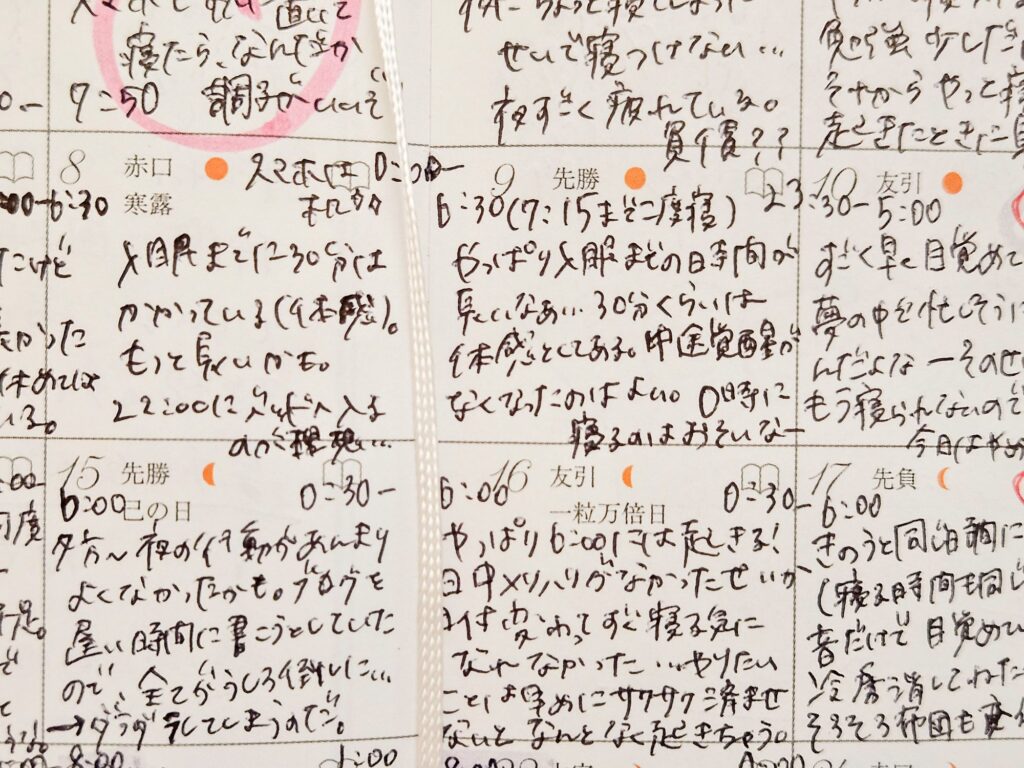 直いて
寝たら、なんだか
7:50 調子がいいぞ
せいで寝つけない…
夜すごく疲れている。
負債??
勉強少した
それからやっと
起きたとき
8 赤口
寒露
スマホは
0:00-
6:30
机から
入眠までに30分は
かかっている(体感)。
もっと長いかも。
22:00にベッドへ入る
のが理想…
9 先勝
6:30(7:15まで二度寝)
やっぱり入眠までの時間が
長いなあ…30分くらいは
体感としてある。中途覚醒が
なくなったのはよい。0時に
寝るのはおそいなー
10 友引
23:30-
5:00
すごく早く目覚めて
夢の中を忙しそうに
んだよなーそのせい
もう寝られないので
今日はやめ
15 先勝
巳の日
0:30-
6:00
夕方〜夜の行動があんまり
よくなかったかも。ブログを
遅い時間に書こうとしていた
ので、全てがうしろ倒しに…
→ダラダラしてしまうのだ。
16 友引
一粒万倍日
0:30-
6:00
やっぱり6:00には起きる!
日中メリハリがなかったせいか
変わってすぐ寝る気に
なれなかった…やりたい
ことは早めにサクサク済ませ
ないとなんとなく起きちゃう。
17 先負
6:00
きのうと同じ調に
(寝る時間も同じ
音だけで目覚めて
冷房消してねた
そろそろ布団も変
8:00
1:00